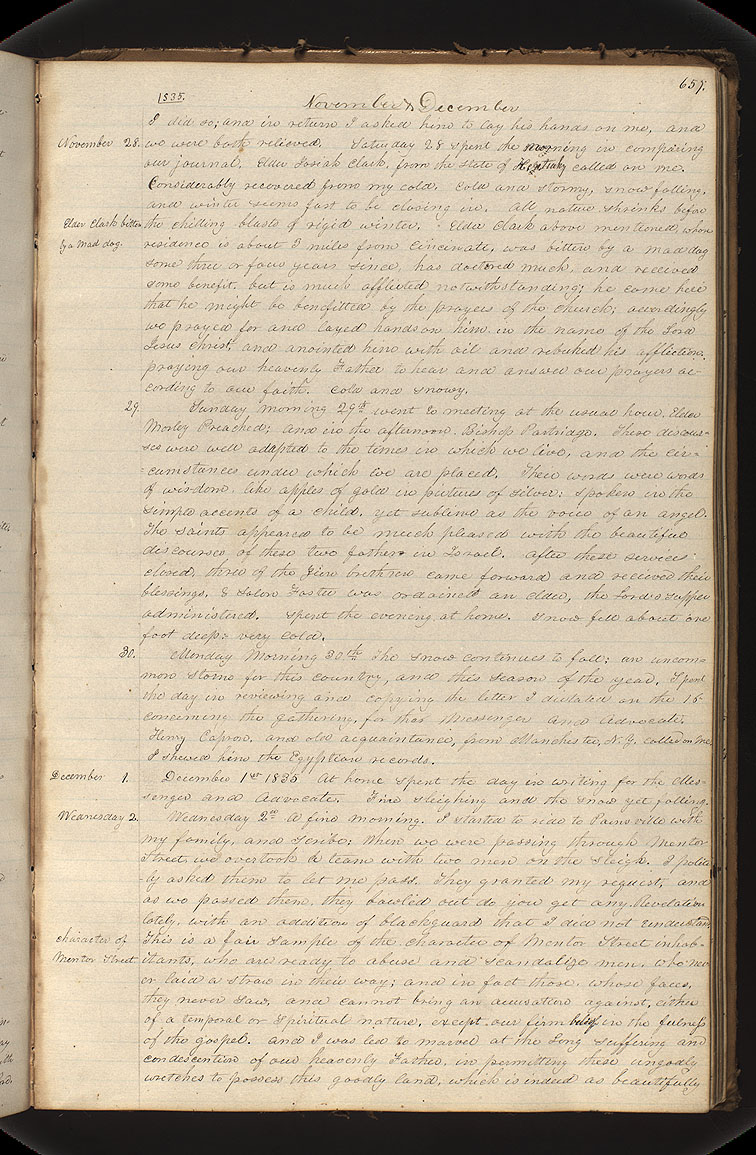 1835.
November & December
657.
I did so; and in return I asked him to lay his hands on me, and
November 28. we were both relieved. Saturday 28 spent the morning in comparing
our journal. Elder Josiah Clark, from the state of Kentucky called on me.
Considerably recovered from my cold. Cold and stormy, snow falling,
and winter seems fast to be closing in. All nature shrinks before
Elder Clark bitten the chilling blasts of rigid winter. Elder Clark above mentioned, whose
by a Mad dog. residence is about 3 miles from Cincinnate, was bitten by a mad dog
some three or four years since, has doctored much, and received
some benefit, but is much afflicted notwithstanding; he came here
that he might be benefitted by the prayers of the church; accordingly
we prayed for and layed hands on him in the name of the Lord
Jesus Christ, and anointed him with oil and rebuked his affliction,
praying our heavenly Father to hear and answer our prayers ac-
cording to our faith. Cold and snowy.
29. Sunday morning 29th went to meeting at the usual hour. Elder
Morley Preached; and in the afternoon Bishop Partridge. These discour-
ses were well adapted to the times in which we live, and the cir-
=cumstances under which we are placed. Their words were words
of wisdom, like apples of gold in pictures of silver; spoken in the
simple accents of a child, yet sublime as the voice of an angel.
The saints appeared to be much pleased with the beautiful
discourses of these two fathers in Israel. After these services
closed, three of the Zion brethren came forward and received their
blessings, & Solon Foster was ordained an elder, the Lord's supper
administered. Spent the evening at home. Snow fell about one
foot deep: very cold.
30. Monday Morning 30th The snow continues to fall; an uncom-
mon storm for this country, and this season of the year. Spent
the day in reviewing and copying the letter I dictated on the 15
concerning the gathering, for the Messenger and Advocate.
Henry Capron, and old acquaintance, from Manchester, N.Y. called on me,
I shewed him the Egyptian records.
December 1. December 1st 1835 At home spent the day in writing for the Mes-
senger and Advocate. Fine sleighing and the snow yet falling.
Wednesday 2. Wednesday 2nd A fine morning. I started to ride to Painsville with
my family, and scribe; When we were passing through Mentor
Street, we overtook a team with two men on the sleigh. I polite-
-ly asked them to let me pass. They granted my request, and
as we passed them, they bawled out do you get any Revelation
lately, with an addition of blackguard that I did not understand.
character of This is a fair sample of the character of Mentor Street inhab-
Mentor Street. itants, who are ready to abuse and scandalize men, who nev-
er laid a straw in their way; and in fact those, whose faces,
they never saw, and cannot bring an accusation against, either
of a temporal or Spiritual nature, except our firm belief in the fulness
of the gospel. And I was led to marvel at the long suffering and
condescention of our heavenly Father, in permitting these ungodly
wretches to possess this goodly land, which is indeed as beautifully